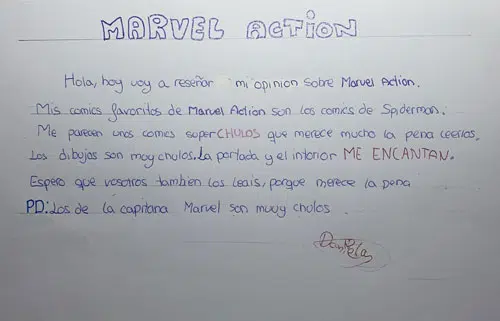 MARVEL ACTION
Hola, hoy voy a reseñar mi opinion sobre Marvel Action.
Mis comics favoritos de Marvel Action son los comics de Spiderman.
Me parecen unos comics super CHULOS que merece mucho la pena leerlos.
Los dibujos son muy chulos. La portada y el interior ME ENCANTAN.
Espero que vosotros tambien los leais, porque merece la pena
PD: Los de la capitana Marvel son muuy chulos
Daniela